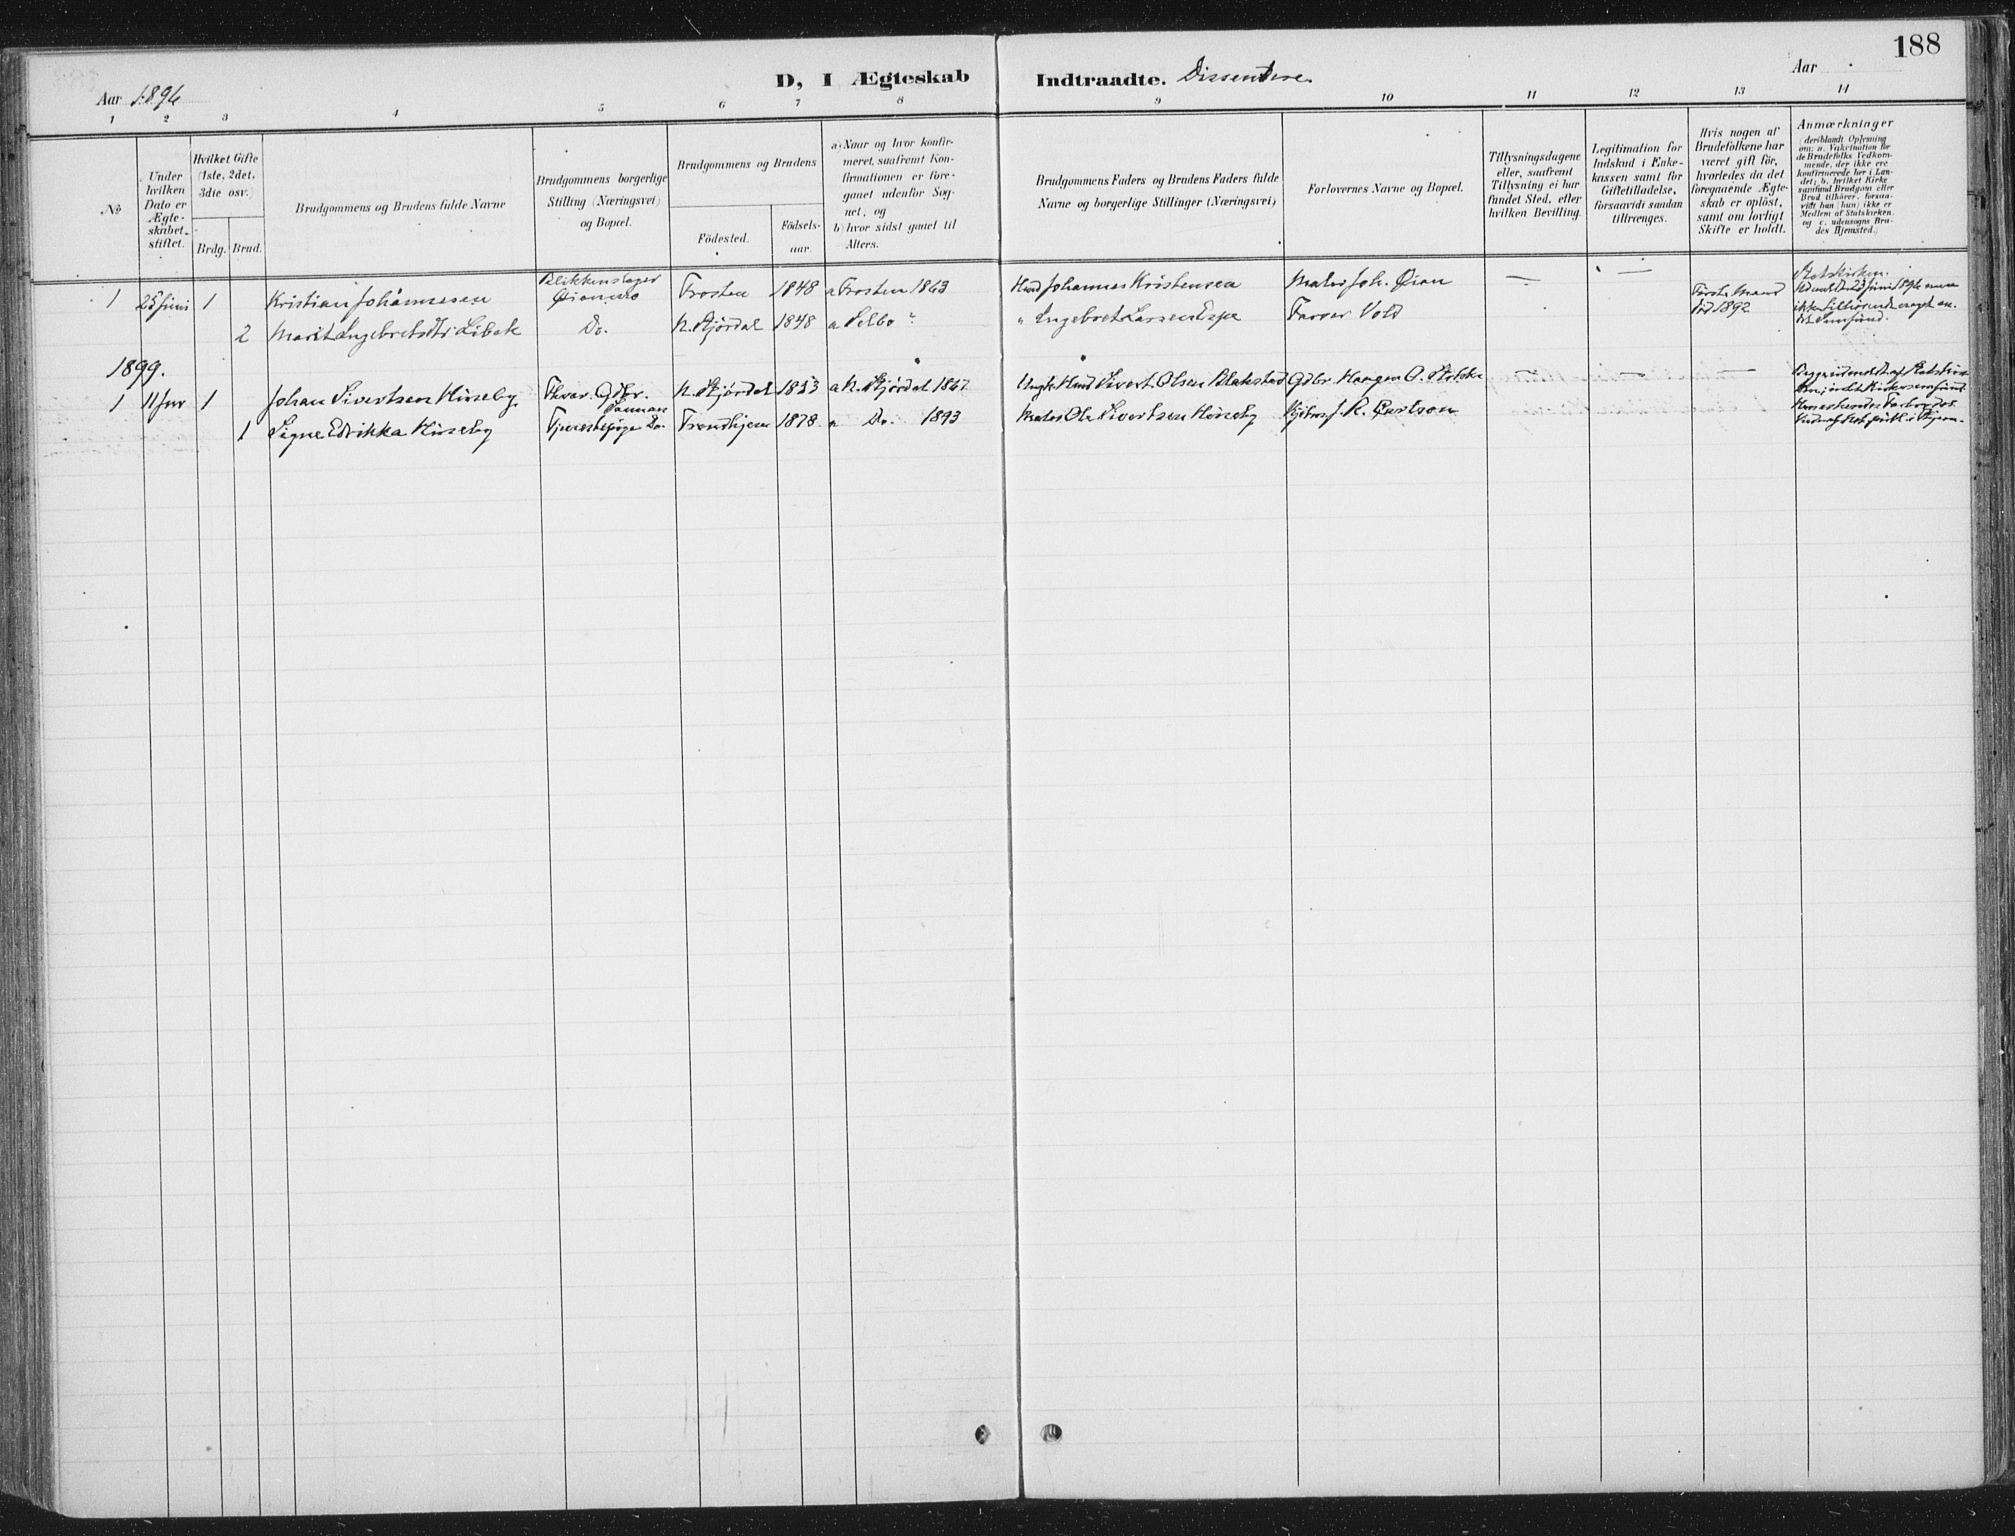 188
Aar 1896
D, I Ægteskab Indtraadte. Dissentere.
Aar
1 2 3 4 5 6 7 8 9 10 11 12 13 14
No
Under hvilken Dato er Ægteskabet stiftet.
Hvilket Gifte (1ste, 2det, 3die osv.)
Brdg. Brud.
Brudgommens og Brudens fulde Navne
Brudgommens borgerlige Stilling (Næringsvei) og Bopæl.
Brudgommens og Brudens
Födested. Födselsaar.
a) Naar og hvor konfirmeret, saafremt Konfirmationen er foregaaet udenfor Sognet, og
b) hvor sidst gaaet til Alters.
Brudgommens Faders og Brudens Faders fulde Navne og borgerlige Stillinger (Næringsvei)
Forlovernes Navne og Bopæl.
Tillysningsdagene eller, saafremt Tillysning ei har fundet Sted, efter hvilken Bevilling.
Legitimation for Indskud i Enkekassen samt for Giftetilladelse, forsaavidt saadan tiltrænges.
Hvis nogen af Brudefolkene har været gift för, hvorledes da det foregaaende Ægteskab er oplöst, samt om lovligt Skifte er holdt.
Anmærkninger
(deriblandt Oplysning om: a. Vakcination for de Brudefolks Vedkommende, der ikke ere konfirmerede her i Landet; b. hvilket Kirkesamfund Brudgom eller Brud tilhörer, forsaavidt han (hun) ikke er Medlem af Statskirken, og c. udensogns Brudes Hjemsted.)
1 25 Juni 1 Kristian Johannesen Blikkenslager Frosten 1848 a Frosten 1863 Husd Johannes Kristensen Maler Joh. Öian — —
2 Marit Ingebretsdtr Libak Do. N. Stjördal 1848 a Selbo " " Ingebret Larsen Espe Farver Vold Förste Mand död 1892
1899.
1 11 1 Johan Sivertsen Hirseby N. Stjördal 1853 a N. Stjördal 1867 Sivert Olsen Gdbr. O. — — —
1 Signe Edrikka Hirseby Do. Trondhjem 1878 a Do. 1893 Sivertsen Hirseby